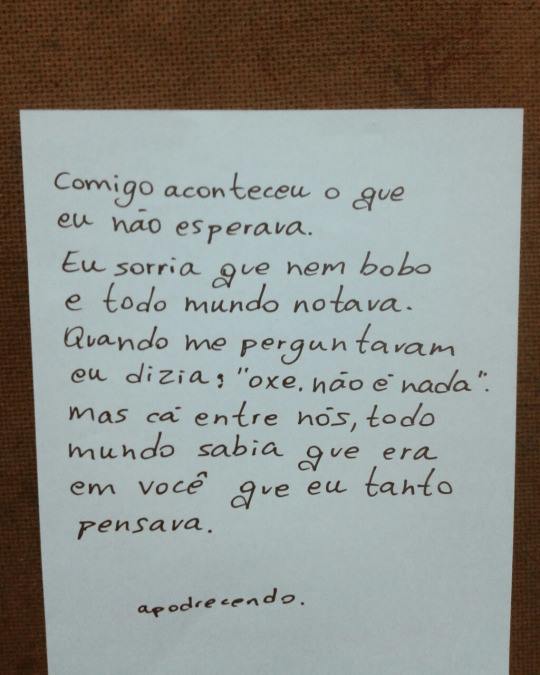 Comigo aconteceu o que
eu não esperava.
Eu sorria que nem bobo
e todo mundo notava.
Quando me perguntavam
eu dizia: "oxe. não é nada".
mas cá entre nós, todo
mundo sabia que era
em você que eu tanto
pensava.
apodrecendo.